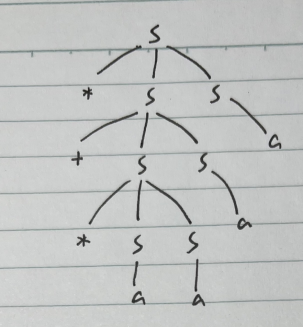 S
* S S
a
+ S S
a
* S S
a a